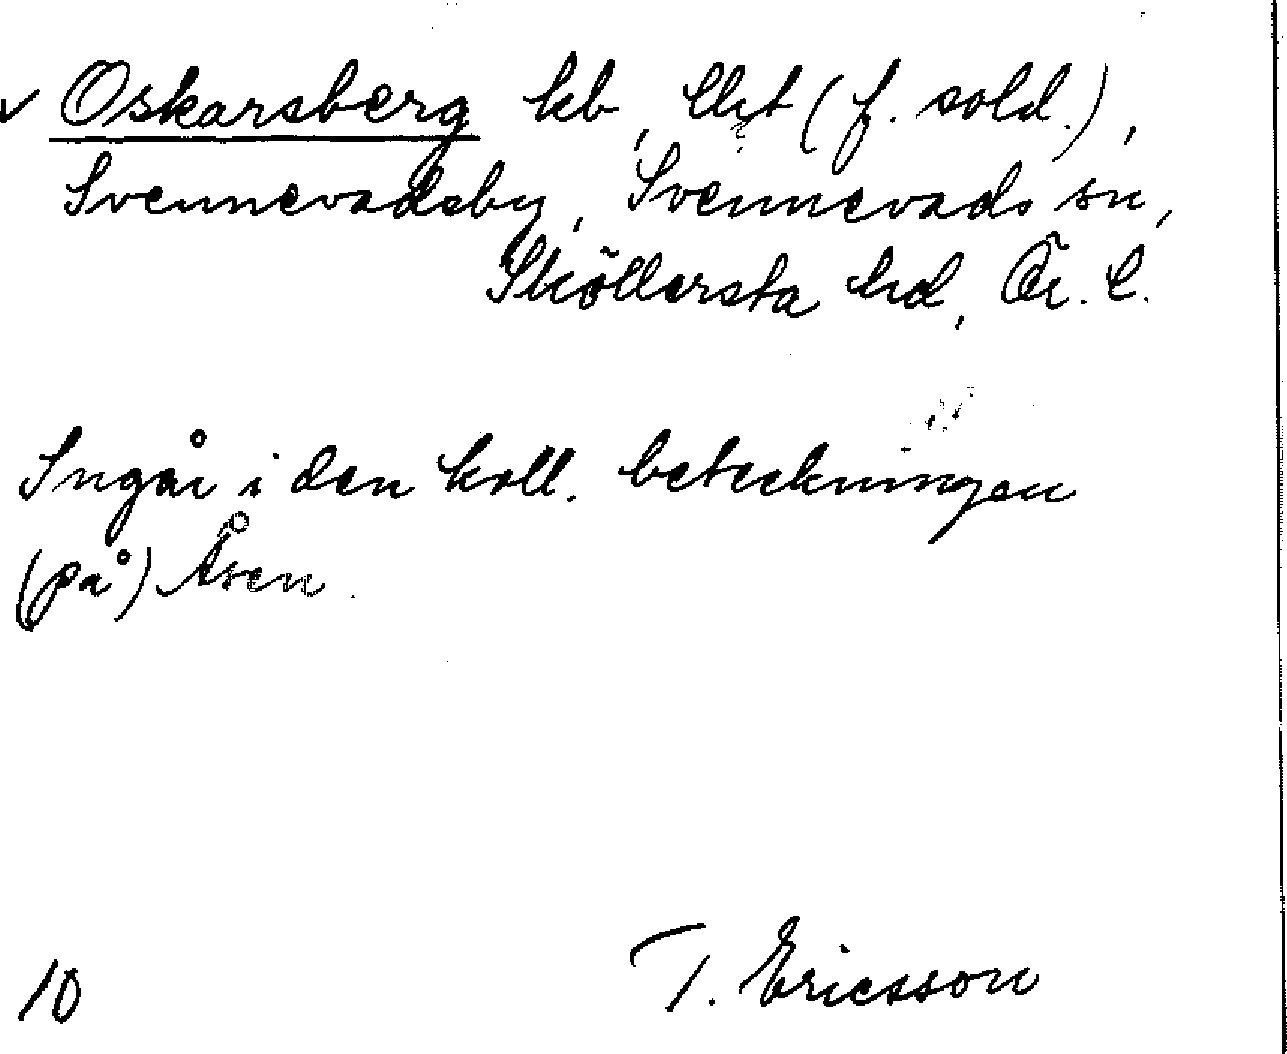 v Oskarsberg hb, lht (f. sold.),
Svennevadsby, Svennevads sn,
Sköllersta hd, Ör. l.
Ingår i den koll. beteckningen
(på) Åsen.
10 T. Ericsson